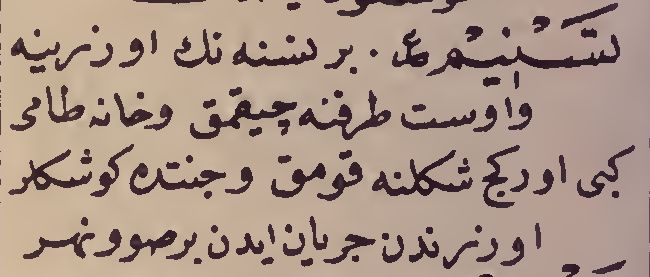 تَسْنِيْم ع . بر نسنه نك اوزرينه
واوست طرفنه چيقمق وخانه طامى
كبى اوركج شكلنه قومق وجنتده كوشكلر
اوزرندن جريان ايدن برصوونهر